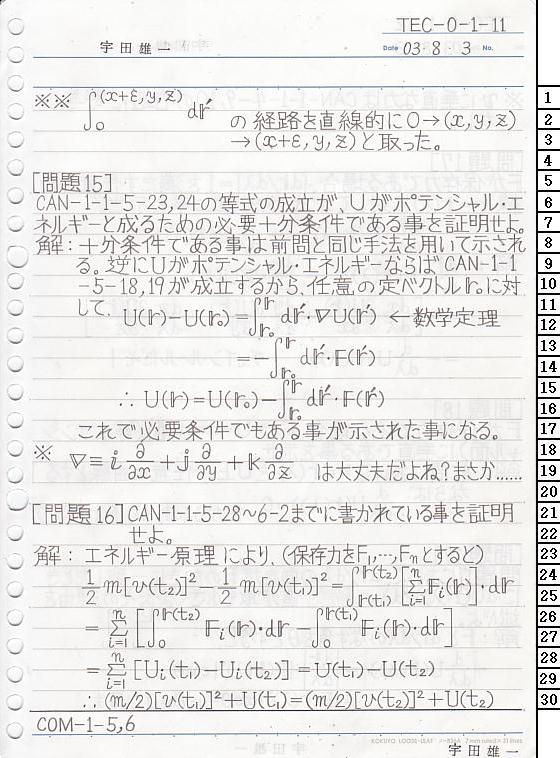 TEC-0-1-11
宇田雄一 Date 03・8・3 No.
※※ ∫₀^(x+ε,y,z) d𝕣′ の経路を直線的に0→(x,y,z)
→(x+ε,y,z)と取った。
[問題15]
CAN-1-1-5-23,24の等式の成立が、Uがポテンシャル・エ
ネルギーと成るための必要十分条件である事を証明せよ。
解:十分条件である事は前問と同じ手法を用いて示され
る。逆にUがポテンシャル・エネルギーならばCAN-1-1
-5-18,19が成立するから、任意の定ベクトル𝕣₀に対
して、U(𝕣)-U(𝕣₀)=∫_𝕣₀^𝕣 d𝕣′・∇U(𝕣′) ←数学定理
=∫_𝕣₀^𝕣 d𝕣′・𝔽(𝕣′)
∴ U(𝕣)=U(𝕣₀)-∫_𝕣₀^𝕣 d𝕣′・𝔽(𝕣′)
これで必要条件でもある事が示された事になる。
※ ∇≡𝕚 ∂/∂x +𝕛 ∂/∂y +𝕜 ∂/∂z は大丈夫だよね?まさか……
[問題16]CAN-1-1-5-28~6-2までに書かれている事を証明
せよ。
解:エネルギー原理により、(保存力をF₁,…,Fₙとすると)
1/2 m[v(t₂)]²-1/2 m[v(t₁)]²=∫_𝕣(t₁)^𝕣(t₂) [Σ_i=1^n 𝔽ᵢ(𝕣)]・d𝕣
=Σ_i=1^n [∫₀^𝕣(t₂) 𝔽ᵢ(𝕣)・d𝕣-∫₀^𝕣(t₁) 𝔽ᵢ(𝕣)・d𝕣]
=Σ_i=1^n [Uᵢ(t₁)-Uᵢ(t₂)]=U(t₁)-U(t₂)
∴(m/2)[v(t₁)]²+U(t₁)=(m/2)[v(t₂)]²+U(t₂)
COM-1-5,6
KOKUYO LOOSE-LEAF ノ-836A 7mm ruled×31 lines
宇田雄一
1
2
3
4
5
6
7
8
9
10
11
12
13
14
15
16
17
18
19
20
21
22
23
24
25
26
27
28
29
30